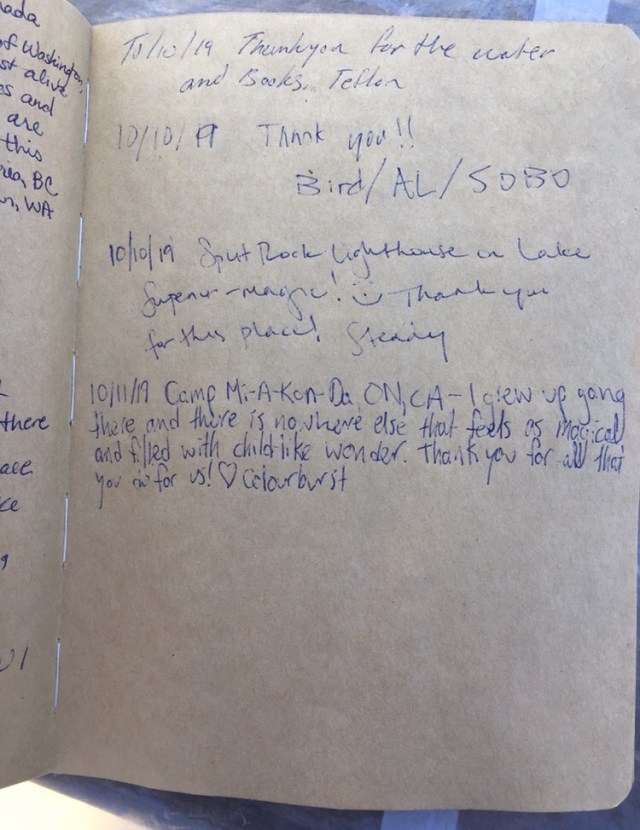 nada
of Washington,
st alive
es and
are
this
ria, BC
wn, WA
there
ace
ke
10/10/19 Thank you for the water
and Books. Teflon
10/10/19 Thank you!!
Bird/AL/SOBO
10/10/19 Split Rock Lighthouse on Lake
Superior - magic! Thank you
for this place! Steady
10/11/19 Camp Mi-A-Kon-Da, ON, CA - I grew up going
there and there is nowhere else that feels as magical
and filled with childlike wonder. Thank you for all that
you do for us! ♡ Colourburst